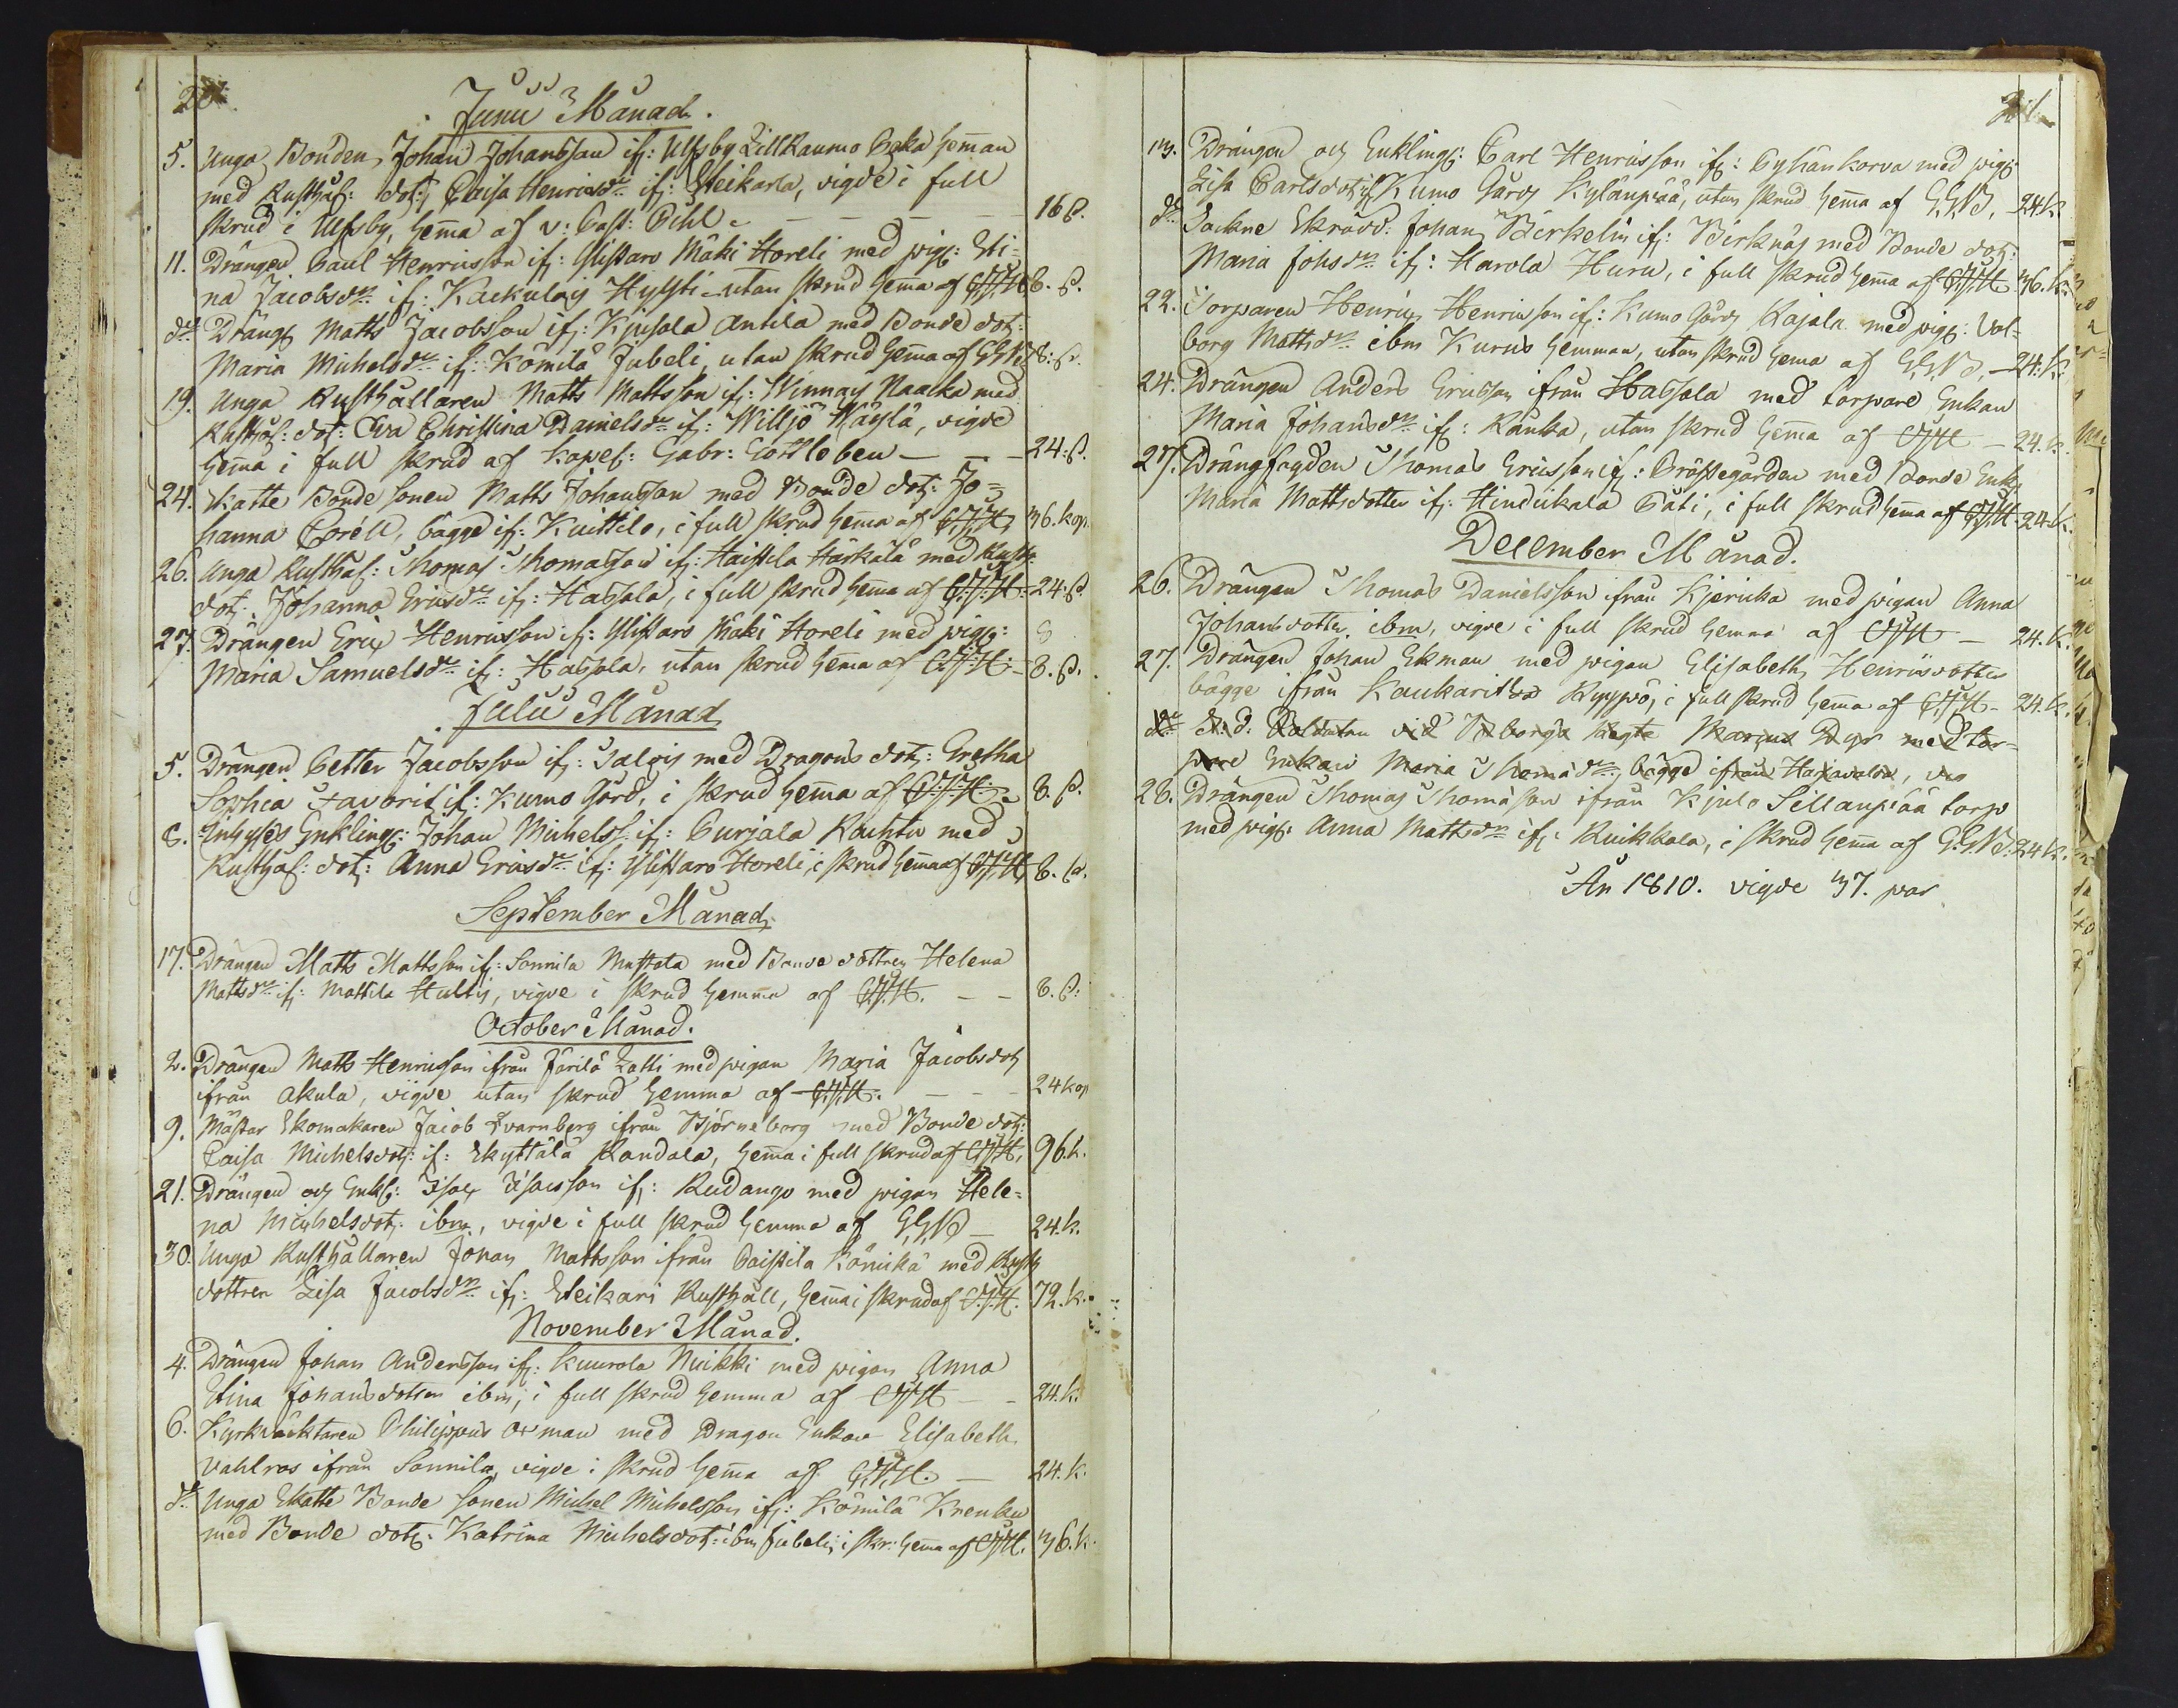 20.
Junii Månad.
5. Unga Bonden Johan Johansson if: Ulfsby LillRaumo Pekka hemman
med Rusthål: dot: Caisa Henricsdr if: Steikarla, vigde i full
skrud i Ulfsby, hema af v: Past: Pihl. — — — 16 β.
11. Drängen Paul Henricsson if: Ylistaro Mäki Horeli med pig: Sti-
na Jacobsdr if: Kaekulaj Hyssti utan skrud hema af C.F.H. 8. β.
do Dräng Matts Jacobsson if: Kjusala Antila med Bonde dot:
Maria Michelsdr if: Kömilä Jubeli, utan skrud hema af G.G.N. 8. β.
19. Unga Rusthållaren Matts Mattsson if: Winnaj Naacka med
Rusthål: dot: Eva Christina Danielsdr if: Willjo Käylä, vigde
hema i full skrud af Kapel: Gabr: Gottleben — — 24. β.
24. Skatte Bonde sonen Matts Johansson med Bonde dot: Jo-
hanna Corell, bägge if: Kuittilo, i full skrud hema af C.F.H. 36. kop.
26. Unga Rusthål: Thomas Thomasson if: Haistila Härkälä med Rusth:
dot: Johanna Ericsdr if: Hassala, i full skrud hema af C.F.H. 24. β.
27. Drängen Eric Henricsson if: Ylistaro Mäki Horeli med pig:
Maria Samuelsdr if: Hassala, utan skrud hema af C.F.H. — 8. β.
Julii Månad
5. Drängen Petter Jacobsson if: Talois med Dragons dot: Gretha
Sophia Favorit if: Kumo Gård, i skrud hema af C.F.H. 8. β.
8. Inhyses Enkling: Johan Michelss: if: Purjala Rauhtu med
Rusthål: dot: Anna Ericsdr if: Ylistaro Horeli, i skrud hema af C.F.H. 8. β.
September Månad
17. Drängen Matts Mattsson if: Sonnila Mustola med Bonde dottren Helena
Mattsdr if: Mattila Hultis, vigde i skrud hemma af C.F.H. — — 8. β:
October Månad.
2. Drängen Matts Henricsson ifrån Järilä Latti med pigan Maria Jacobsdot
ifrån Akula, vigde utan skrud hemma af C.F.H. — — 24 kop
9. Mästar Skomakaren Jacob Qvarnberg ifrån Björneborg med Bonde dot:
Caisa Michelsdot: if: Skyttälä Randala, hema i full skrud af C.F.H. 96. k.
21. Drängen och Enkl: Isac Isacsson if: Rudango med pigan Hele-
na Michelsdot: ibm, vigde i full skrud hemma af G.G.N — 24. k.
30. Unga Rusthållaren Johan Mattsson ifrån Paistila Könickä med Rusth
dottren Lisa Jacobsdr if: Steikari Rusthåll, hema i skrud af C.F.H. 72. k.
November Månad.
4. Drängen Johan Andersson if: Kuurola Nuikki med pigan Anna
Stina Johansdotter ibm, i full skrud hemma af C.F.H — — 24. k.
6. Kyrkväktaren Philippus Orman med Dragon Enkan Elisabeth
Vahlros ifrån Sonnila, vigde i skrud hema af C.F.H. — 24. k.
do Unga Skatte Bonde sonen Michel Michelsson if: Kömilä Krenku
med Bonde dot: Katrina Michelsdot: ibm Jubeli, i skr: hema af C.F.H. 36. k.
21.
13. Drängen och Enkling: Carl Henricsson if: Pyhänkorva med pig:
Lisa Carlsdot: if Kumo Gårds Kylänpää, utan skrud hema af G.G.N. 24 k.
do Sockne Skrädd: Johan Birkelin if: Birknäs med Bonde dot:
Maria Johsdr if: Harola Huru, i full skrud hema af C.F.H 36. k.
22. Torparen Henric Henricsson if: Kumo Gårds Rajala med pig: Val-
borg Mattsdr ibm Kurus hemman, utan skrud hema af G.G.N. — 24. k.
24. Drängen Anders Ericsson ifrån Hassala med torpare Enkan
Maria Johansdr if: Kauka, utan skrud hema af C.F.H — 24. k.
27. Drängfogden Thomas Ericsson if: Prästegården med Bonde Enk:
Maria Mattsdotter if: Hindikala Päti, i full skrud hema af C.F.H. 24. k.
December Månad.
26. Drängen Thomas Danielsson ifrån Kjericka med pigan Anna
Johansdotter ibm, vigde i full skrud hemma af C.F.H — 24. k.
27. Drängen Johan Ekman med pigan Elisabeth Henricsdotter
bägge ifrån Kaukarith Ryppö, i full skrud hema af C.F.H. — 24. k.
do A. d. Soldaten vid Wiborgs Regte Marcus Dyr med tor-
pare Enkan Maria Thomädr, bägge ifrån Harjavalda, vig
28. Drängen Thomas Thomasson ifrån Kjulo Sillanpää torp
med pig: Anna Mattsdr if: Ruikkala, i skrud hema af G.G.N. 24 k.
År 1810. vigde 37. par